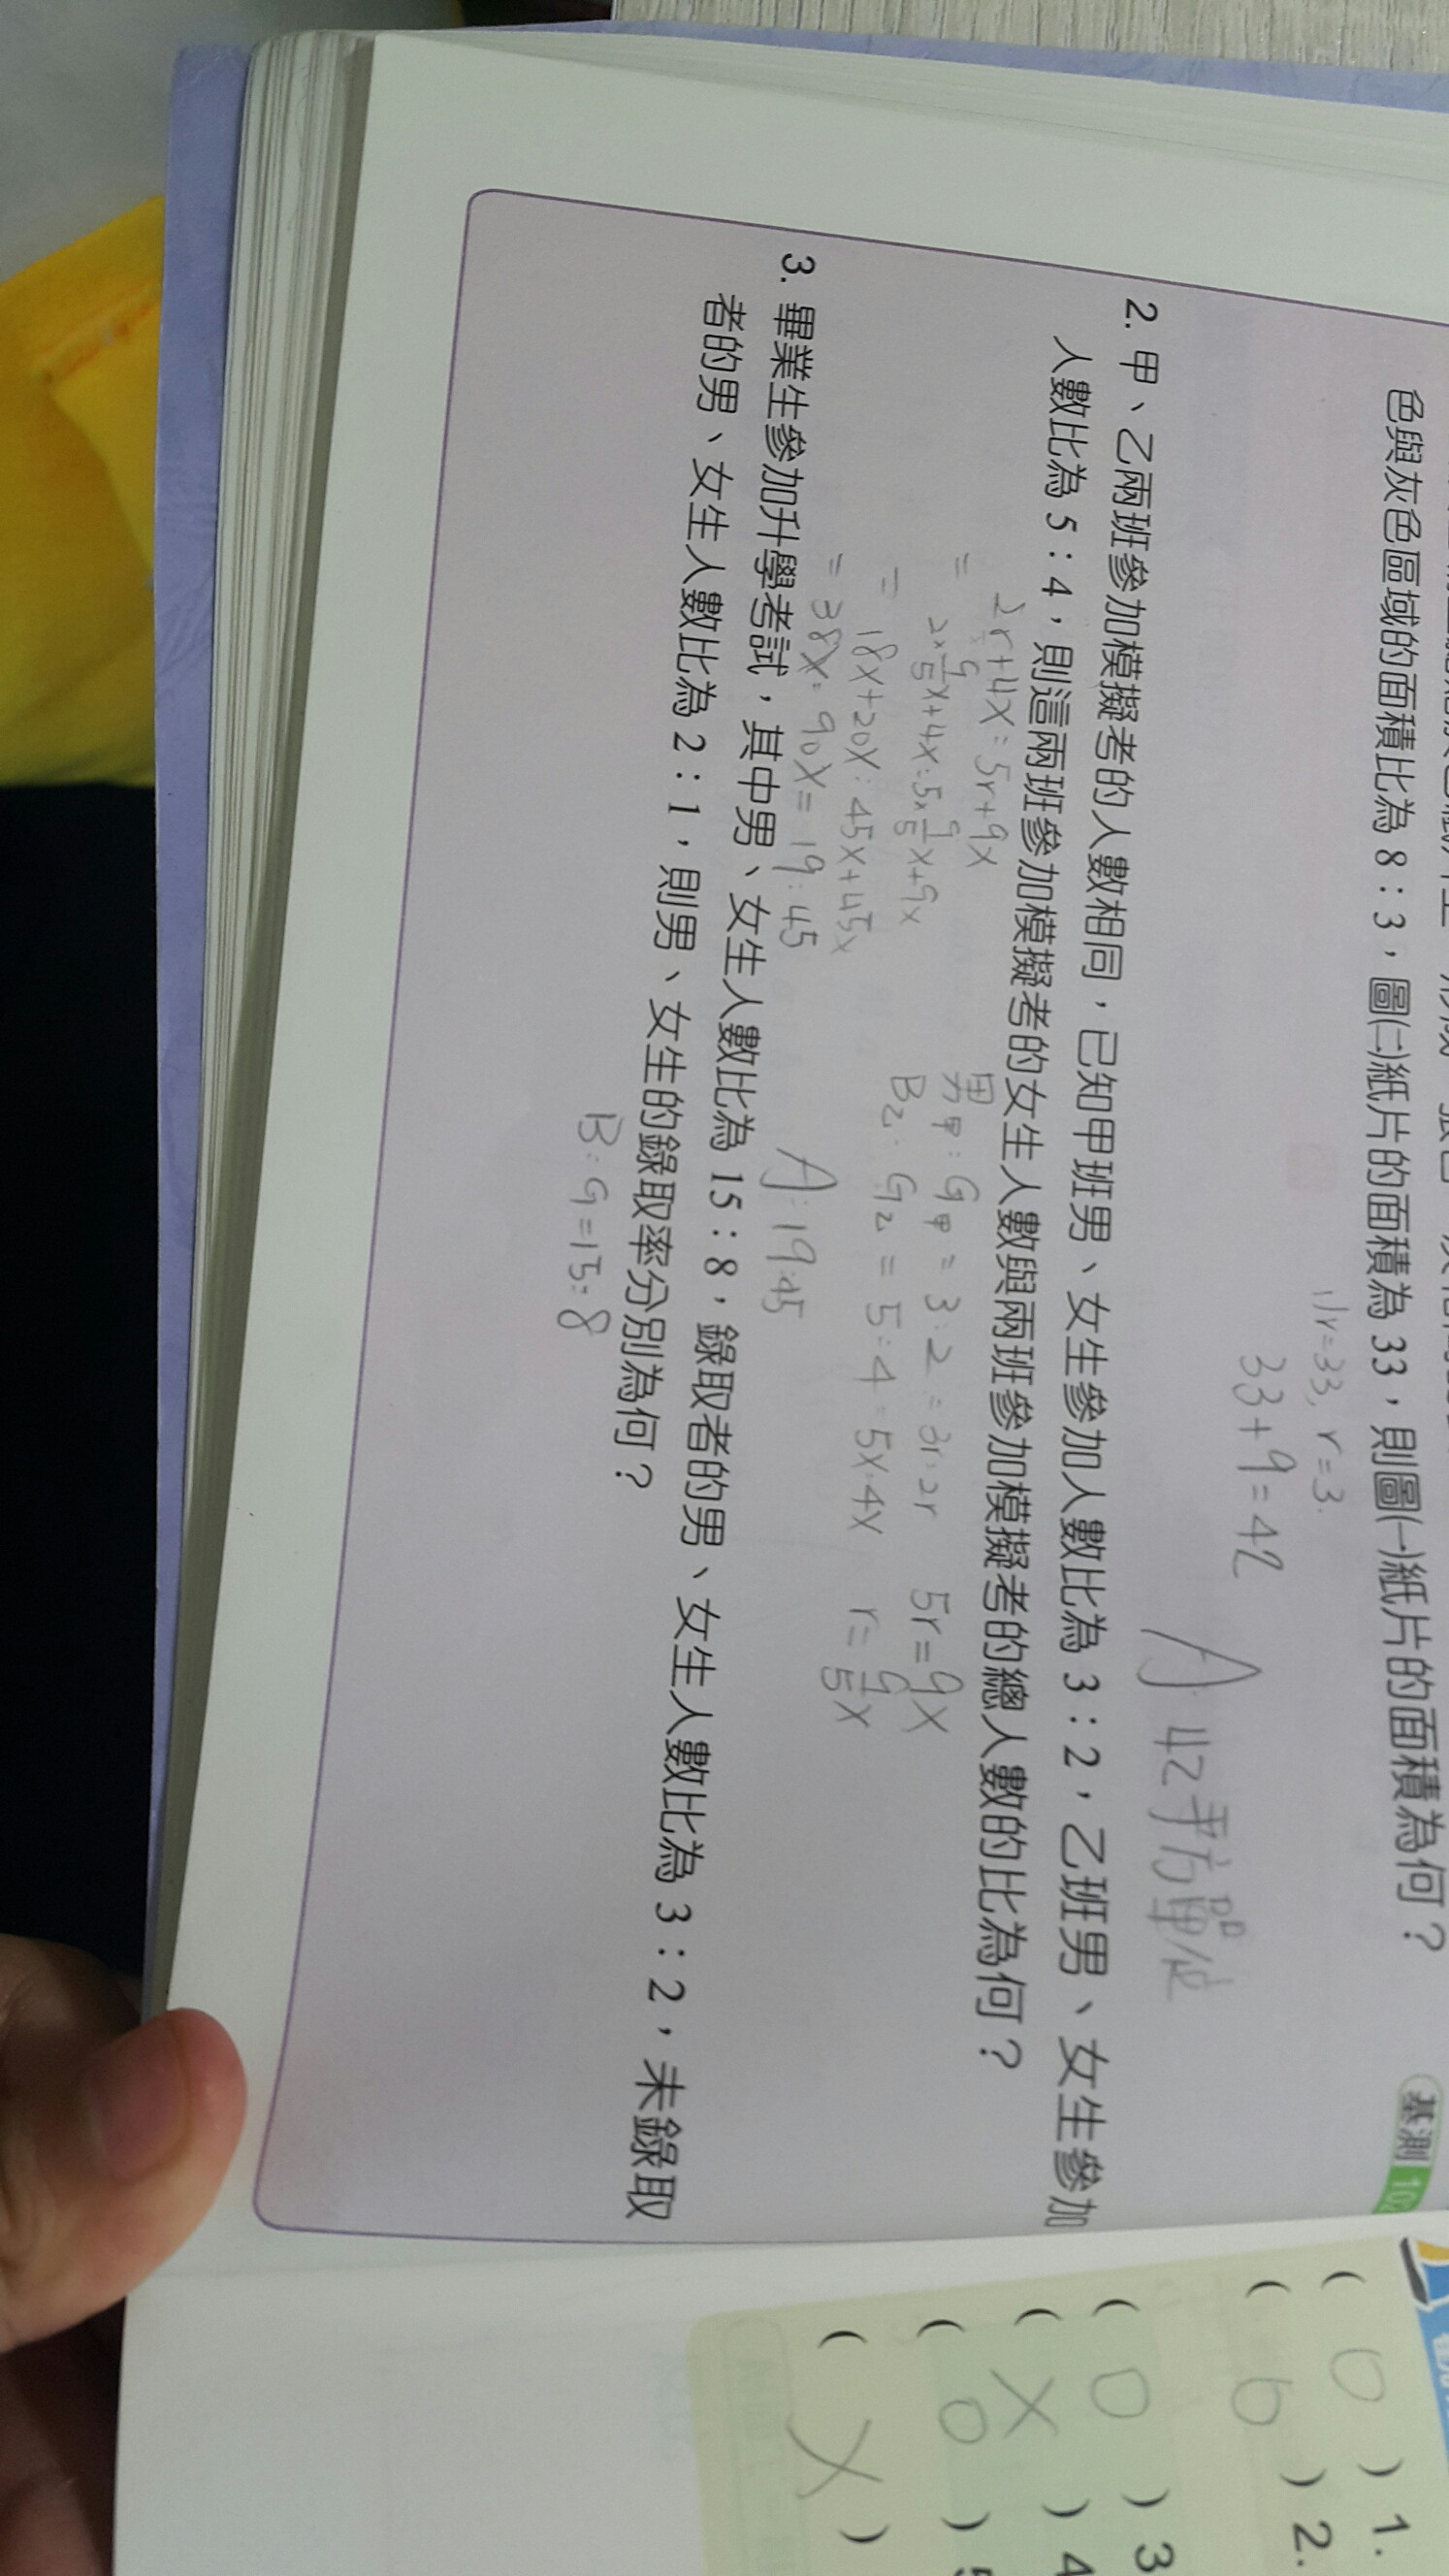 色與灰色區域的面積比為 8：3，圖(二)紙片的面積為 33，則圖(一)紙片的面積為何？
基測 102
11r=33, r=3.
33+9=42
A: 42平方單位
2. 甲、乙兩班參加模擬考的人數相同，已知甲班男、女生參加人數比為 3：2，乙班男、女生參加
人數比為 5：4，則這兩班參加模擬考的女生人數與兩班參加模擬考的總人數的比為何？
2r+4x:5r+9x
= 2×9/5x+4x:5×9/5x+9x
= 18x+20x:45x+45x
= 38x:90x=19:45
男甲:G甲=3:2=3r:2r 5r=9x
B乙:G乙=5:4=5x:4x r=9/5x
A:19:45
3. 畢業生參加升學考試，其中男、女生人數比為 15：8，錄取者的男、女生人數比為 3：2，未錄取
者的男、女生人數比為 2：1，則男、女生的錄取率分別為何？
B:G=15:8
( O ) 1.
( O ) 2.
( O ) 3
( X ) 4
( O ) 5
( X )